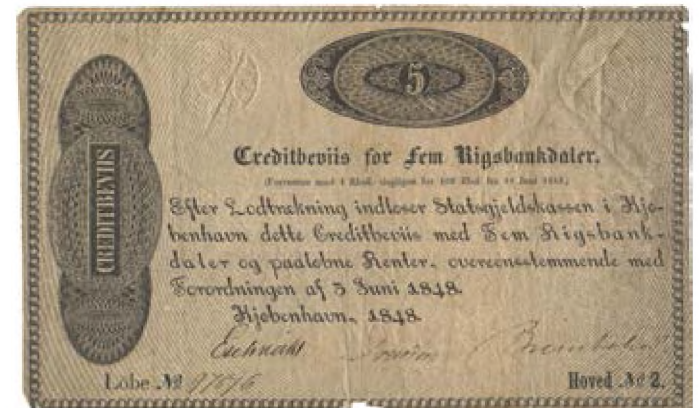 5
CREDITBEVIIS
Creditbeviis for Fem Rigsbankdaler.
Efter Lodtrækning indløser Statsgjeldskassen i Kjø-
benhavn dette Creditbeviis med Fem Rigsbank-
daler og paaløbne Renter, overeensstemmende med
Forordningen af 5 Juni 1848.
Kjøbenhavn, 1848.
Løbe №
Hoved № 2.